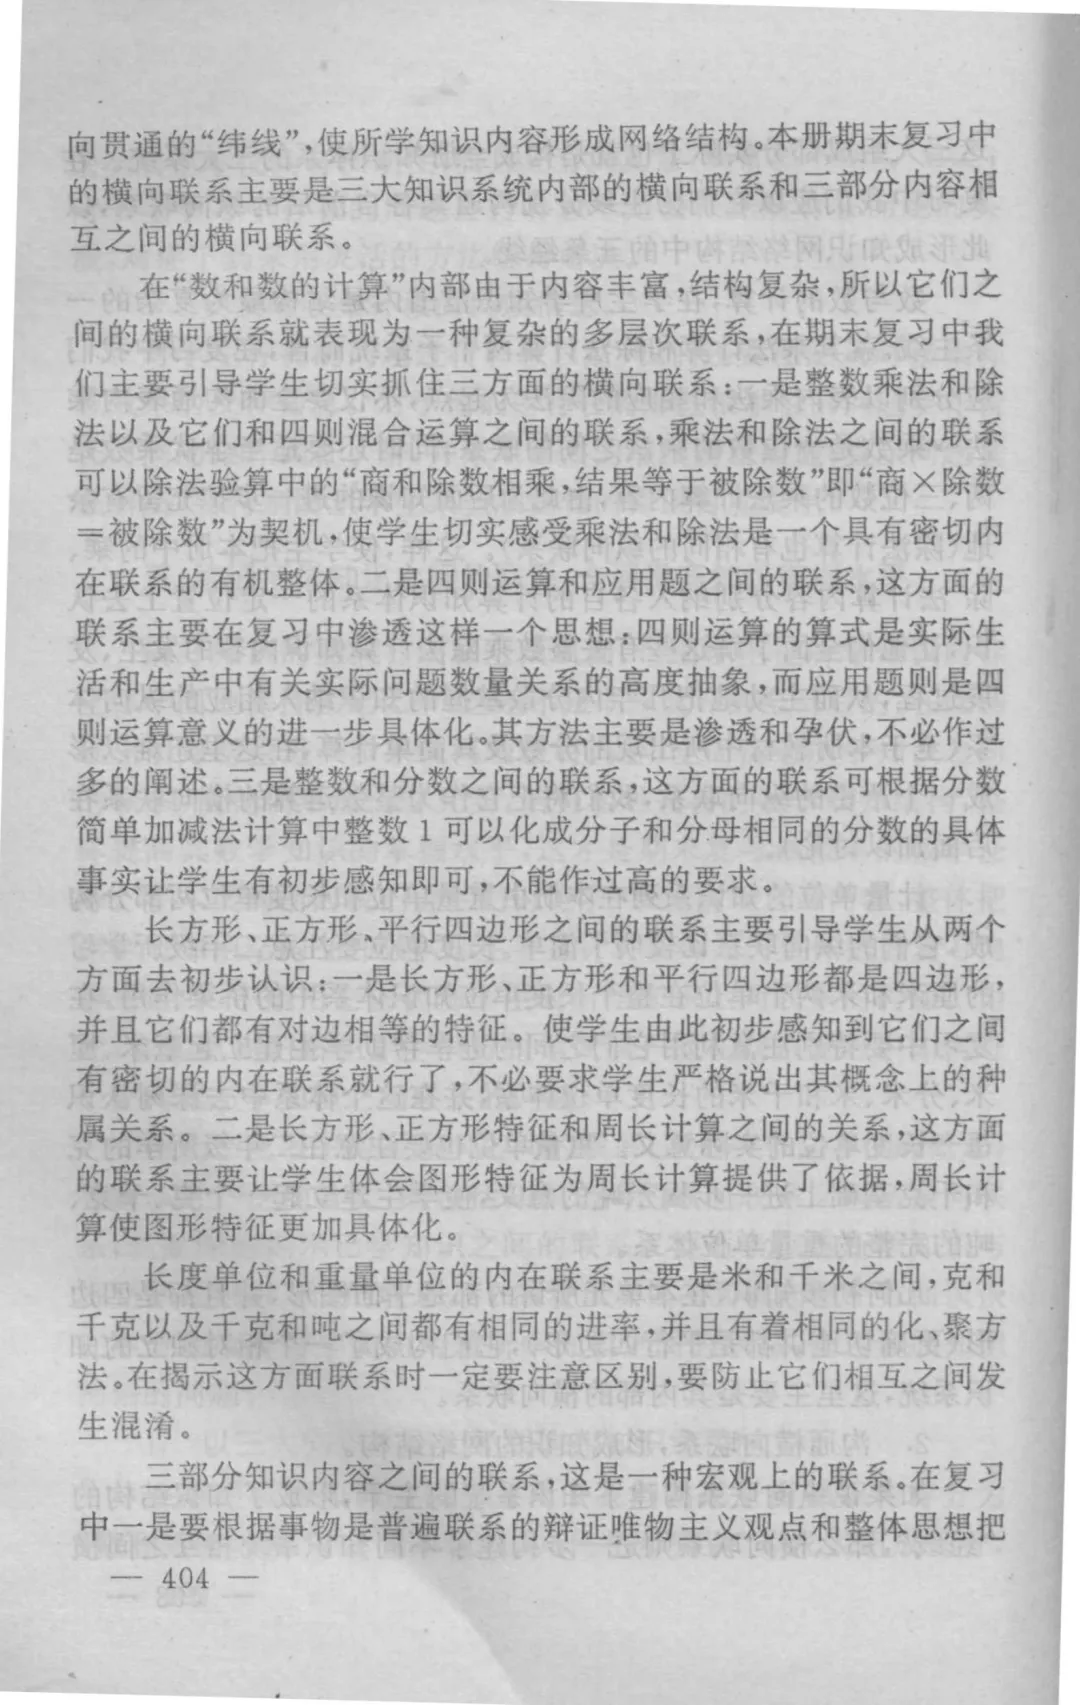 向贯通的“纬线”,使所学知识内容形成网络结构。本册期末复习中
的横向联系主要是三大知识系统内部的横向联系和三部分内容相
互之间的横向联系。
在“数和数的计算”内部由于内容丰富,结构复杂,所以它们之
间的横向联系就表现为一种复杂的多层次联系,在期末复习中我
们主要引导学生切实抓住三方面的横向联系:一是整数乘法和除
法以及它们和四则混合运算之间的联系,乘法和除法之间的联系
可以除法验算中的“商和除数相乘,结果等于被除数”即“商×除数
=被除数”为契机,使学生切实感受乘法和除法是一个具有密切内
在联系的有机整体。二是四则运算和应用题之间的联系,这方面的
联系主要在复习中渗透这样一个思想:四则运算的算式是实际生
活和生产中有关实际问题数量关系的高度抽象,而应用题则是四
则运算意义的进一步具体化。其方法主要是渗透和孕伏,不必作过
多的阐述。三是整数和分数之间的联系,这方面的联系可根据分数
简单加减法计算中整数1可以化成分子和分母相同的分数的具体
事实让学生有初步感知即可,不能作过高的要求。
长方形、正方形、平行四边形之间的联系主要引导学生从两个
方面去初步认识:一是长方形、正方形和平行四边形都是四边形,
并且它们都有对边相等的特征。使学生由此初步感知到它们之间
有密切的内在联系就行了,不必要求学生严格说出其概念上的种
属关系。二是长方形、正方形特征和周长计算之间的关系,这方面
的联系主要让学生体会图形特征为周长计算提供了依据,周长计
算使图形特征更加具体化。
长度单位和重量单位的内在联系主要是米和千米之间,克和
千克以及千克和吨之间都有相同的进率,并且有着相同的化、聚方
法。在揭示这方面联系时一定要注意区别,要防止它们相互之间发
生混淆。
三部分知识内容之间的联系,这是一种宏观上的联系。在复习
中一是要根据事物是普遍联系的辩证唯物主义观点和整体思想把
— 404 —